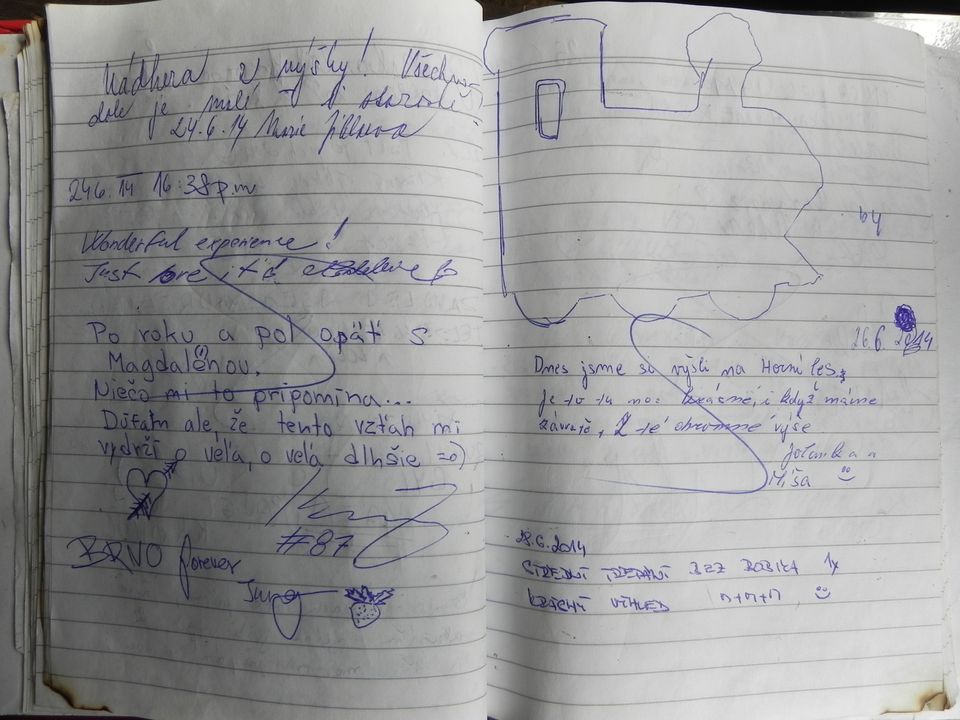 Nádhera z výšky! Všechno
dole je malé
24.6.14 Marie
24.6.14 16:38 p.m
Wonderful experience!
Just
Po roku a pol opäť s
Magdalénou.
Niečo mi to pripomína...
Dúfam ale, že tento vzťah mi
vydrží o veľa, o veľa dlhšie =o)
#87
BRVO forever
by
26.6. 2014
Dnes jsme si vyšli na Horní les,
je to tu moc krásné, i když máme
závratě, z té ohromné výše
a
Míša
28.6.2014
BEZ
KRÁSNÝ VÝHLED